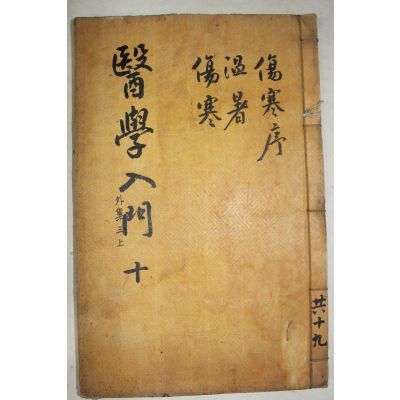 傷寒序
温暑
傷寒
醫學入門 十
外集三上
共十九